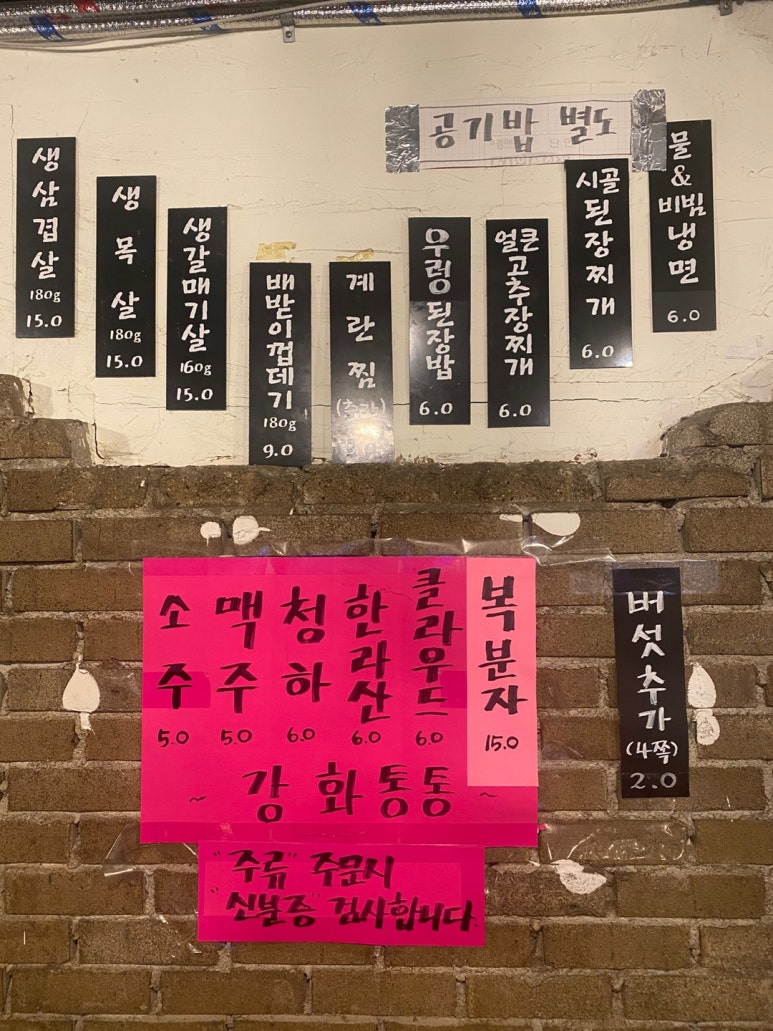 공기밥 별도
생삼겹살 180g 15.0
생목살 180g 15.0
생갈매기살 160g 15.0
배받이껍데기 180g 9.0
계란찜
우렁된장밥 6.0
얼큰고추장찌개 6.0
시골된장찌개 6.0
물&비빔냉면 6.0
소주 5.0
맥주 5.0
청하 6.0
한라산 6.0
클라우드 6.0
복분자 15.0
~ 강화통통 ~
버섯추가 (4쪽) 2.0
"주류" 주문시
"신분증" 검사합니다.